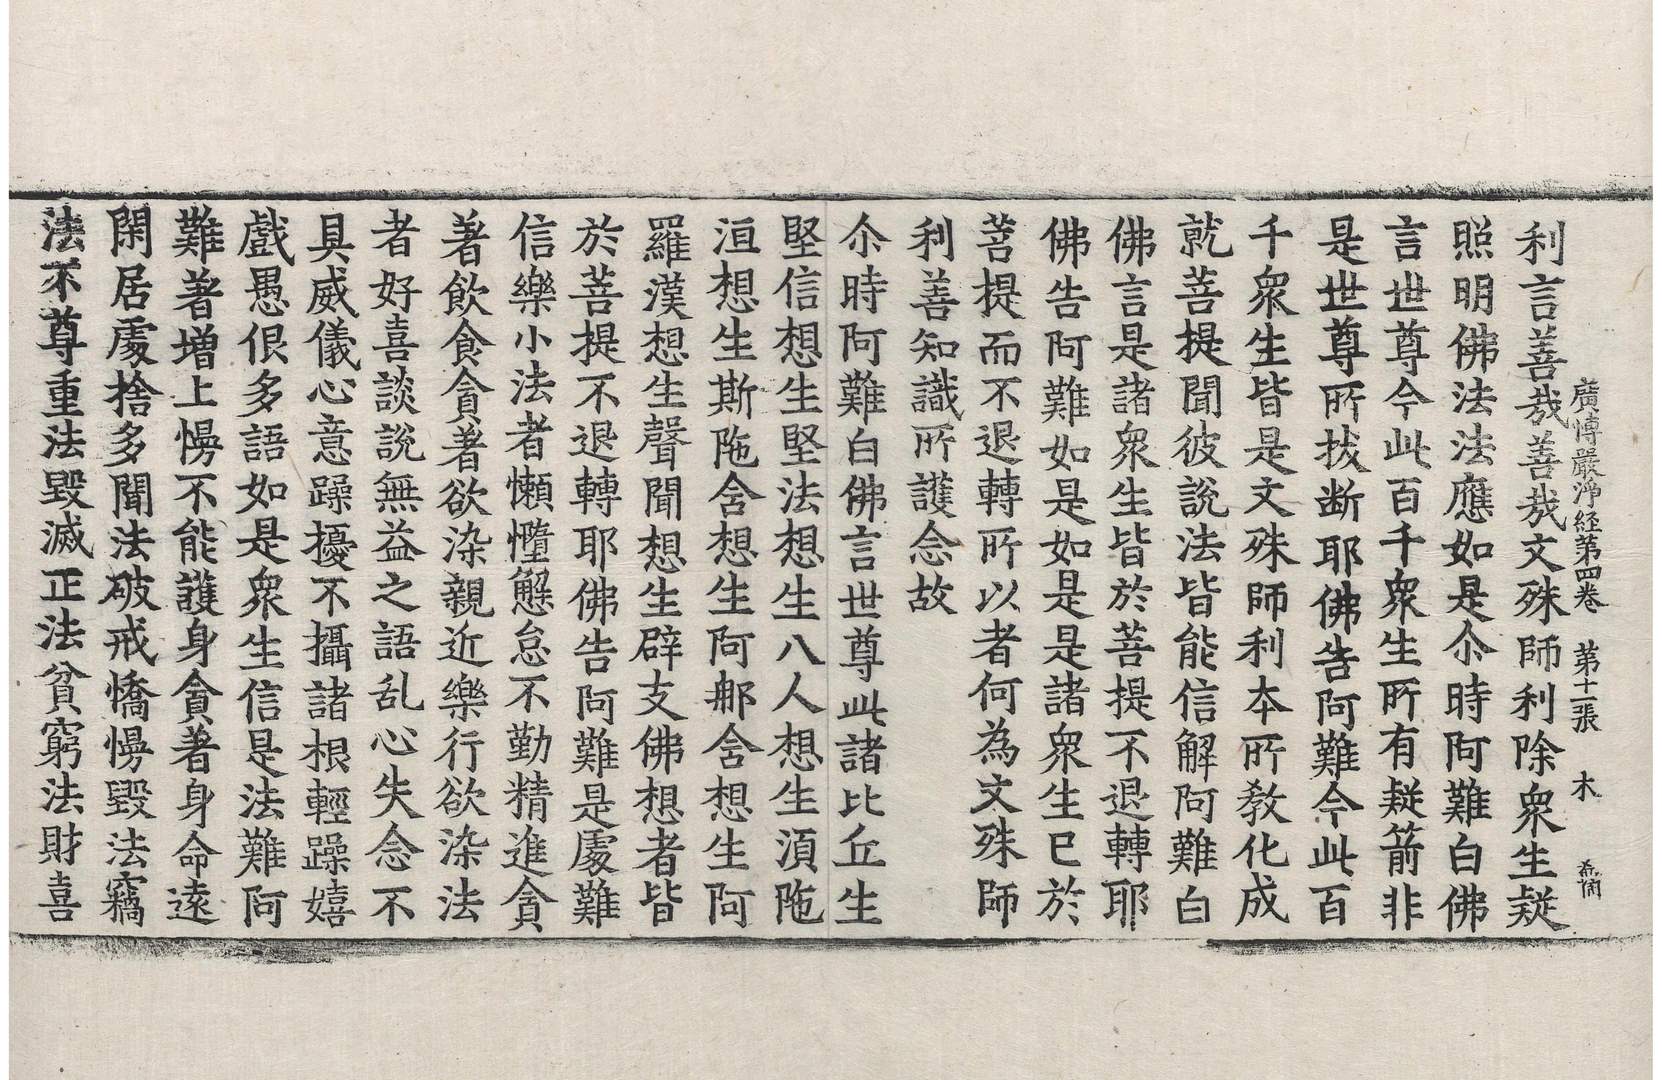 廣愽嚴淨経第四卷　第十一張　木
利言善㦲善㦲文殊師利除衆生疑
照明佛法法應如是尒時阿難白佛
言世尊今此百千衆生所有疑箭非
是世尊所拔断耶佛告阿難今此百
千衆生皆是文殊師利夲所教化成
就菩提聞彼說法皆能信解阿難白
佛言是諸衆生皆於菩提不退轉耶
佛告阿難如是如是是諸衆生已於
菩提而不退轉所以者何為文殊師
利善知識所護念故
尒時阿難白佛言世尊此諸比丘生
堅信想生堅法想生八人想生湏陁
洹想生斯陁含想生阿那含想生阿
羅漢想生聲聞想生辟支佛想者皆
於菩提不退轉耶佛告阿難是處難
信樂小法者懶憧懈怠不勤精進貪
著飲食貪著欲染親近樂行欲染法
者好喜談說無益之語乱心失念不
具威儀心意躁擾不攝諸根輕躁嬉
戲愚佷多語如是衆生信是法難阿
難著增上慢不能護身貪著身命遠
閑居處捨多聞法破戒憍慢毀法竊
法不尊重法毀滅正法貧窮法財喜